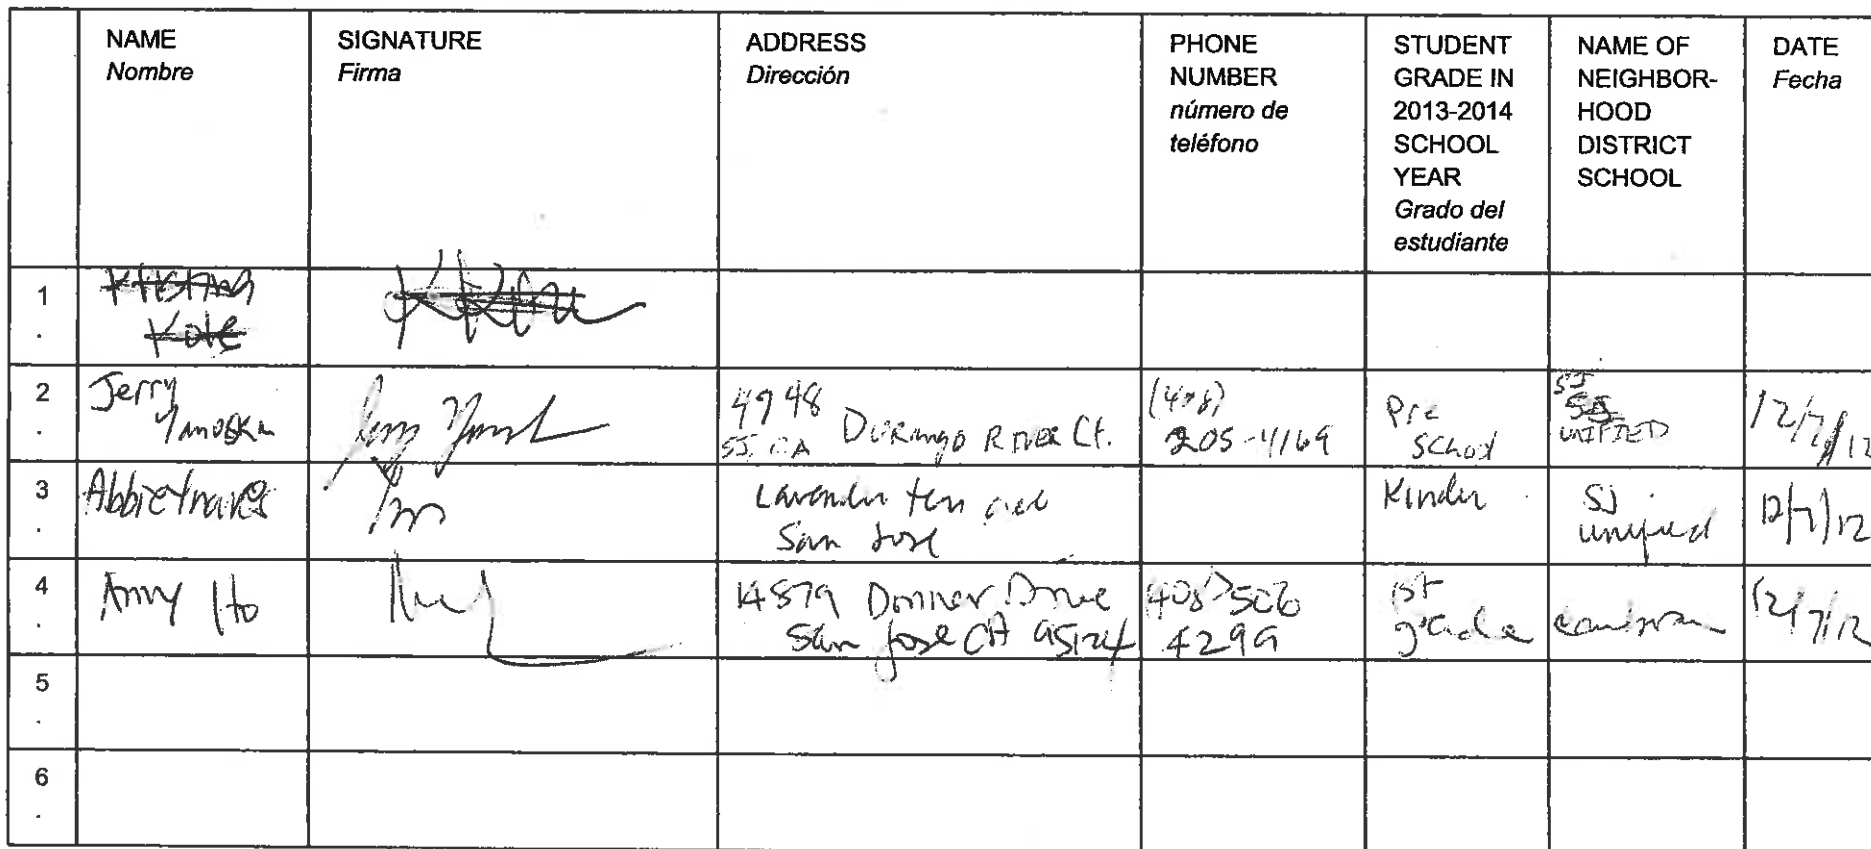 NAME
Nombre
SIGNATURE
Firma
ADDRESS
Dirección
PHONE
NUMBER
número de
teléfono
STUDENT
GRADE IN
2013-2014
SCHOOL
YEAR
Grado del
estudiante
NAME OF
NEIGHBOR-
HOOD
DISTRICT
SCHOOL
DATE
Fecha
1
.
Kole
2
.
Jerry
4948
SJ. CA Durango River Ct.
(408)
205-4169
Pre
School
SJ
UNIFIED
12/7/12
3
.
Abbie
Lavender
San Jose
Kinder
SJ
unified
12/7/12
4
.
Amy Ho
14579 Donner Drive
San Jose CA 95124
408 506
4299
1st
grade
12/7/12
5
.
6
.